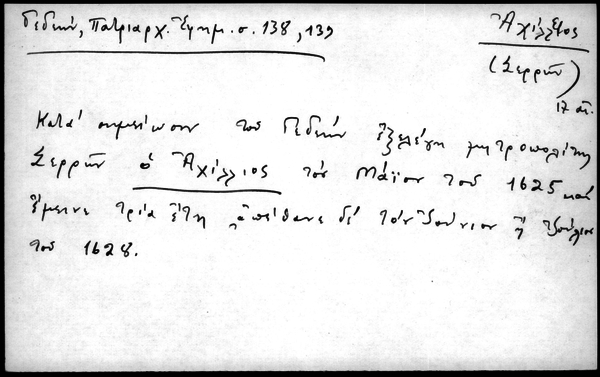 Γεδεών, Πατριαρχ. Ἐφημ. σ. 138, 139
Ἀχίλλιος
(Σερρῶν)
17 αἰ.
Κατά σημείωσιν τοῦ Γεδεών ἐξελέγη μητροπολίτης
Σερρῶν ὁ Ἀχίλλιος τόν Μάϊον τοῦ 1625 καί
ἔμεινε τρία ἔτη, ἀπέθανε δέ τόν Ἰούνιον ἤ Ἰούλιον
τοῦ 1628.